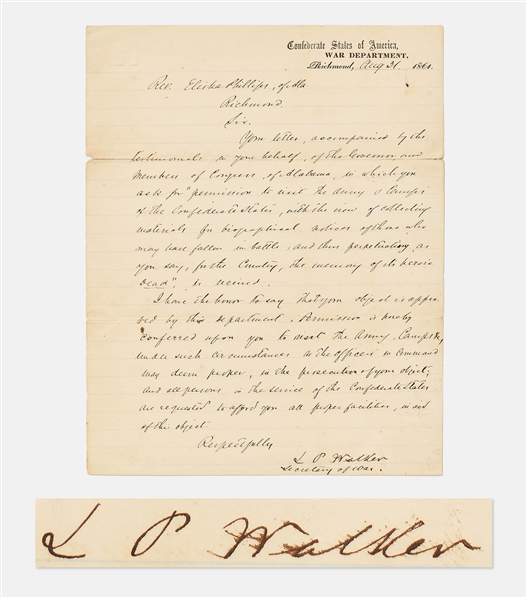 Confederate States of America,
WAR DEPARTMENT.
Richmond, Aug 21. 1861.
Rev. Elisha Phillips, of Ala
Richmond.
Sir.
Your letter, accompanied by the
testimonials in your behalf, of the Governor, and
members of Congress, of Alabama, in which you
ask for "permission to visit the Army & Camps
of the Confederate States, with the view of collecting
materials for biographical notices of those who
may have fallen in battle, and thus perpetuating, as
you say, for the Country, the memory of its heroic
dead", is received.
I have the honor to say that your object is appro
ved by this department. Permission is hereby
conferred upon you to visit the Army, Camps &c,
under such circumstances as the officers in command
may deem proper, in the prosecution of your object,
and all persons in the service of the Confederate States
are requested to afford you all proper facilities, in aid
of this object.
Respectfully
L P Walker
Secretary of War.
L P Walker